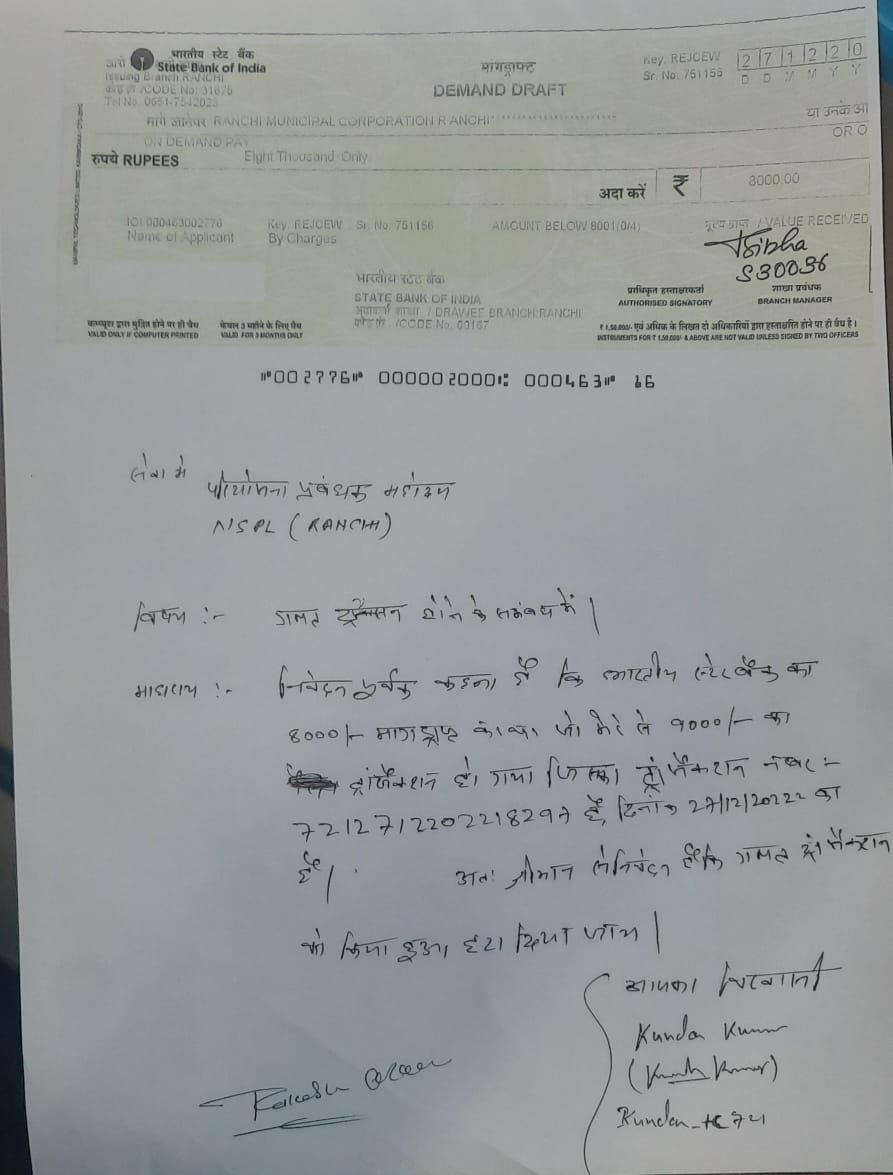 भारतीय स्टेट बैंक
State Bank of India
Issuing Branch: RANCHI
कोड क्र /CODE No: 31675
Tel No. 0651-7542023
मांगड्राफ्ट
DEMAND DRAFT
Key: REJCEW
Sr. No: 751156
2 7 1 2 2 0
D D M M Y Y
मांगे जानेपर RANCHI MUNICIPAL CORPORATION RANCHI
या उनके आ
OR O
ON DEMAND PAY
रुपये RUPEES Eight Thousand Only
अदा करें ₹ 8000.00
IOI 000463002776 Key: REJCEW Sr. No: 751156 AMOUNT BELOW 8001(0/4) मूल्य प्राप्त / VALUE RECEIVED
Name of Applicant By Charges
S30036
भारतीय स्टेट बैंक
STATE BANK OF INDIA
अदाकर्ता शाखा / DRAWEE BRANCH: RANCHI
कोड क्र. /CODE No. 00167
प्राधिकृत हस्ताक्षरकर्ता शाखा प्रबंधक
AUTHORISED SIGNATORY BRANCH MANAGER
कम्प्यूटर द्वारा मुद्रित होने पर ही वैध केवल 3 महीने के लिए वैध
VALID ONLY IF COMPUTER PRINTED VALID FOR 3 MONTHS ONLY
₹ 1,50,000/- एवं अधिक के लिखत दो अधिकारियों द्वारा हस्ताक्षरित होने पर ही वैध है।
INSTRUMENTS FOR ₹ 1,50,000/- & ABOVE ARE NOT VALID UNLESS SIGNED BY TWO OFFICERS
⑈002776⑈ 000002000⑆ 000463⑈ 16
सेवा में
परियोजना प्रबंधक महोदय
NSPL (RANCHI)
विषय :- गलत ट्रैक्सन होने के समंबंध में |
माहाशय :- निवेदन पूर्वक कहना है कि भारतीय स्टेट बैंक का
8000/- मागड्राप्ट का था जो मेरे से 9000/- का
ट्रांजैक्शन हो गया जिसका ट्रांजैक्शन नंबर :-
है, दिनांक 27/12/2022 का
है | अतः श्रीमान से निवेदन है कि गलत ट्रांजैक्शन
को किया हुआ हटा दिया जाय |
आपका विश्वासी
Kundan Kumar
(Kundan Kumar)
Rakesh